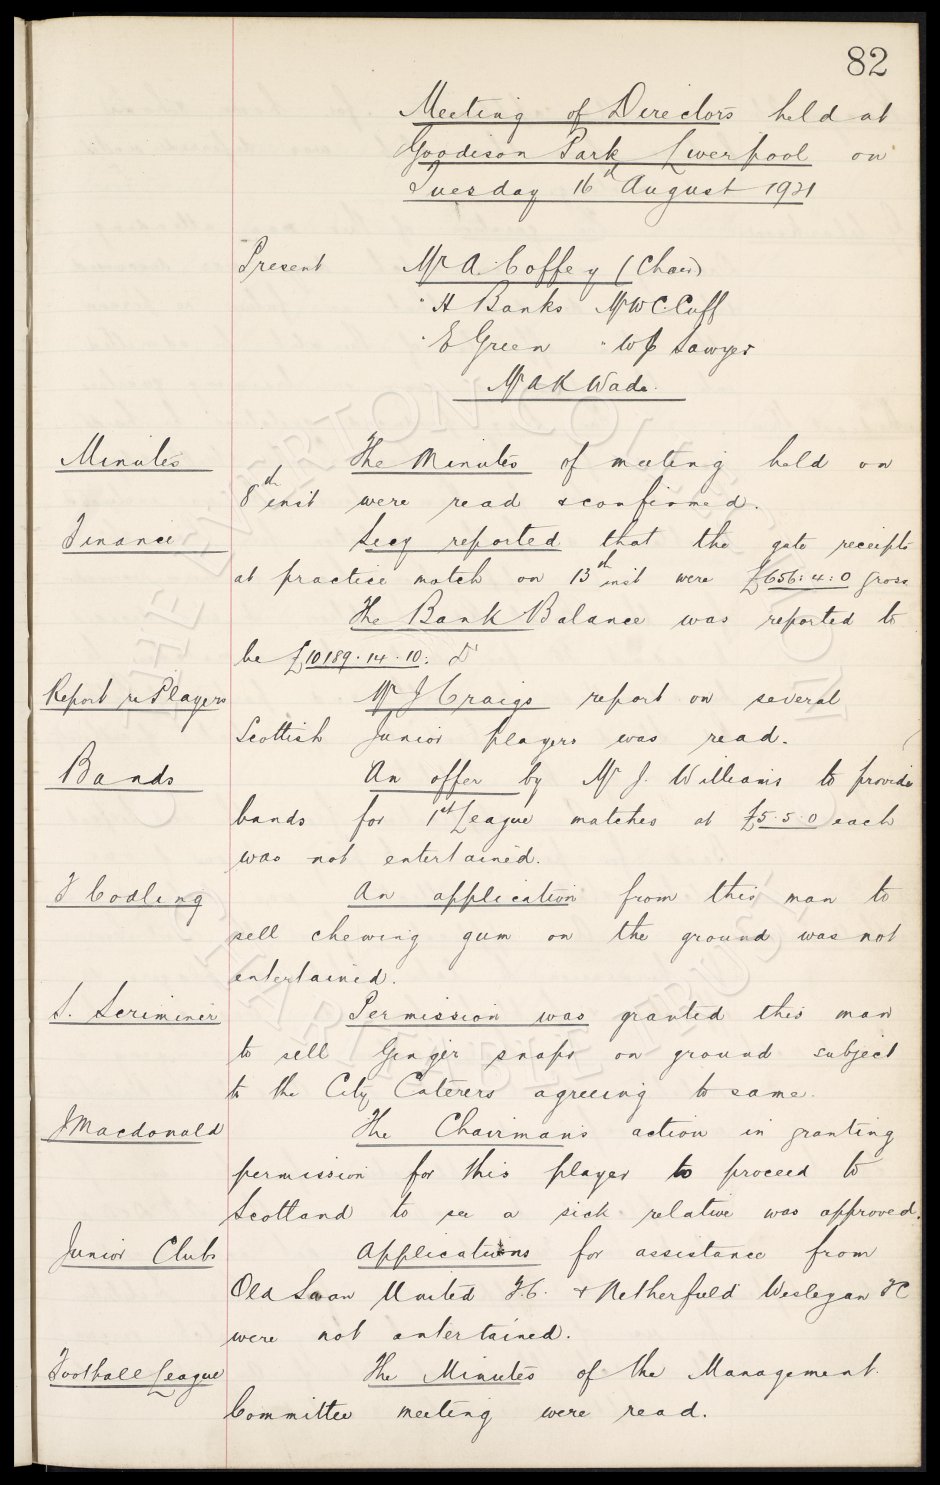 82
Meeting of Directors held at
Goodison Park Liverpool on
Tuesday 16th August 1921
Present Mr A. Coffey (Chair)
" H Banks Mr W C. Cuff
" E Green " W J Sawyer
Mr A K Wade.
Minutes The Minutes of meeting held on
8th inst were read & confirmed.
Finance Secy reported that the gate receipts
at practice match on 13th inst were £656:4:0 gross
The Bank Balance was reported to
be £10189.14.10:
Report re Players Mr J Craigs report on several
Scottish Junior players was read.
Bands An offer by Mr J. Williams to provide
bands for 1st League matches at £5.5.0 each
was not entertained.
J Codling An application from this man to
sell chewing gum on the ground was not
entertained.
S. Scriminer Permission was granted this man
to sell Ginger snaps on ground subject
to the City Caterers agreeing to same.
J Macdonald The Chairman's action in granting
permission for this player to proceed to
Scotland to see a sick relative was approved.
Junior Clubs Applications for assistance from
Old Swan United F.C. & Netherfield Wesleyan FC
were not entertained.
Football League The Minutes of the Management
Committee meeting were read.
THE EVERTON COLLECTION
CHARITABLE TRUST